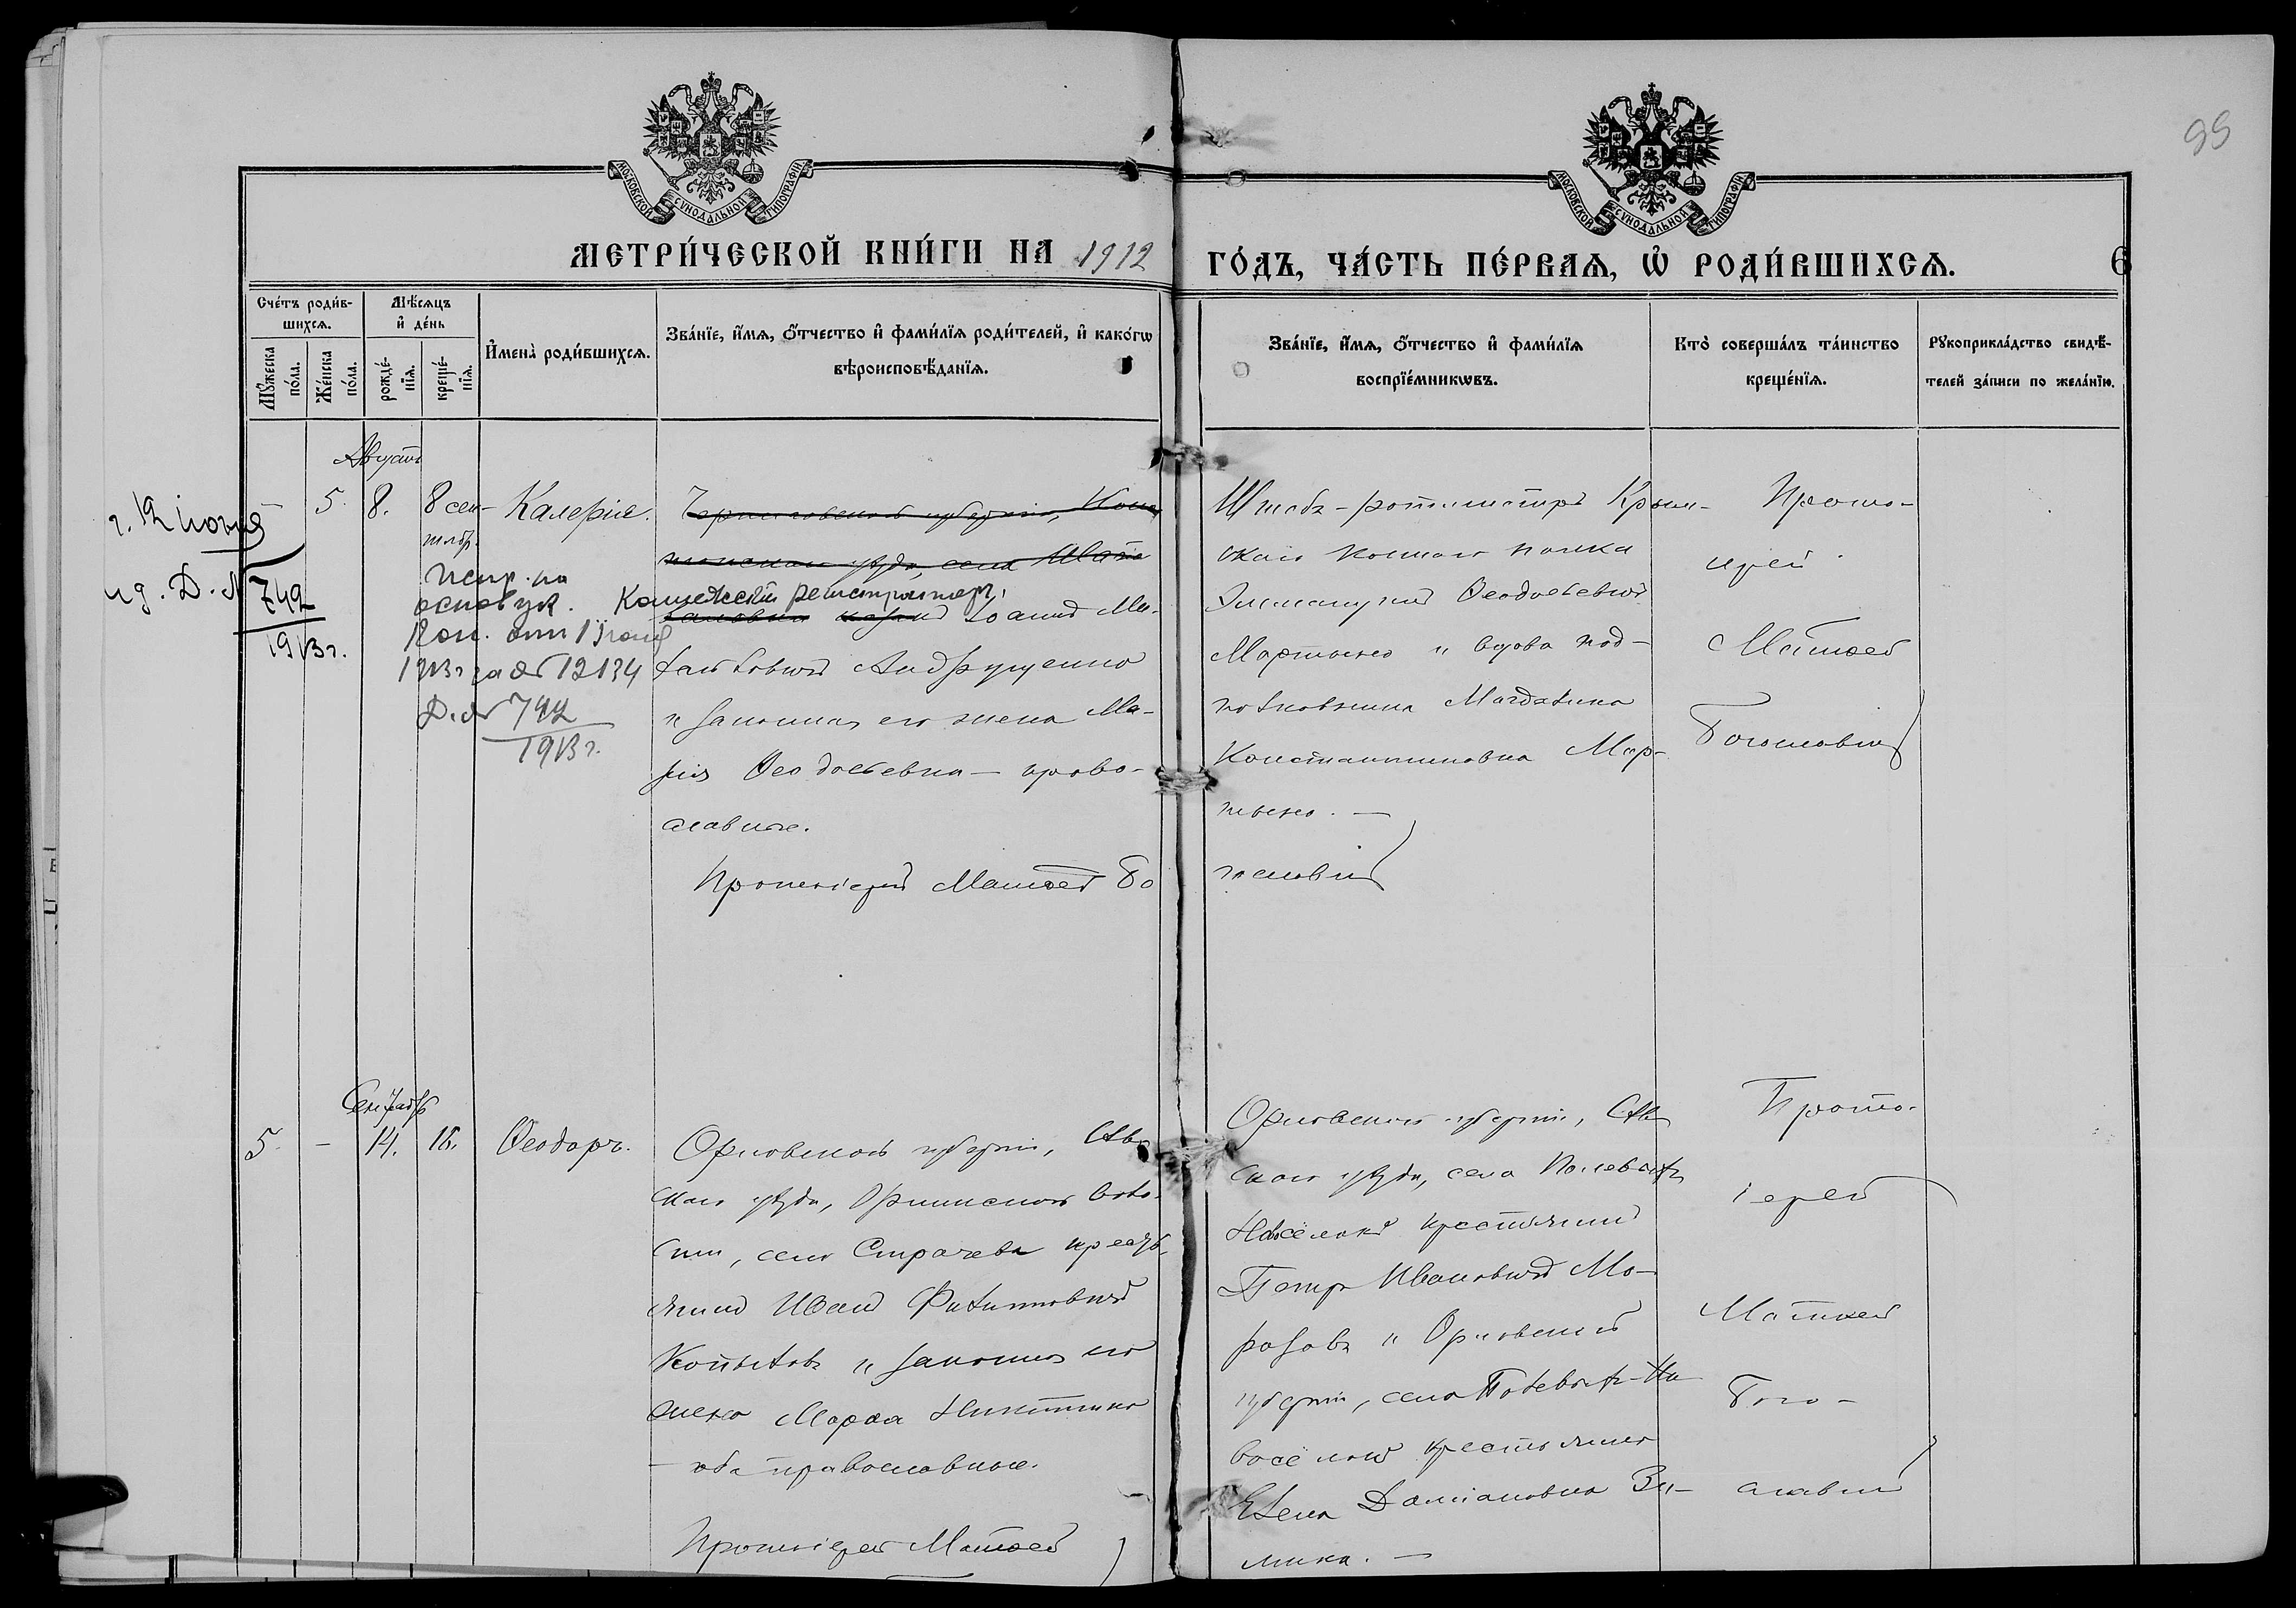 99
МОСКОВСКОЙ СУНОДАЛЬНОЙ ТИПОГРАФІИ
МОСКОВСКОЙ СУНОДАЛЬНОЙ ТИПОГРАФІИ
МЕТРИ́ЧЕСКОЙ КНИ́ГИ НА 1912
ГО́ДЪ, ЧА́СТЬ ПЕ́РВАѦ, Ѡ҆ РОДИ́ВШИХСѦ.
6
Сче́тъ роди́в-
шихсѧ.
Мꙋ́жеска
по́ла.
Же́нска
по́ла.
Мѣ́сѧцъ
и҆ де́нь
рожде́-
нїѧ.
креще́-
нїѧ.
И҆мена̀ роди́вшихсѧ.
Зва́нїе, и҆́мѧ, ѻ҆́тчество и҆ фами́лїѧ роди́телей, и҆ како́гѡ
вѣроисповѣ́данїѧ.
Зва́нїе, и҆́мѧ, ѻ҆́тчество и҆ фами́лїѧ
воспрїе́мникѡвъ.
Кто̀ соверша́лъ та́инство
креще́нїѧ.
Рꙋкоприкла́дство свидѣ́-
телей за́писи по жела́нїю.
Августъ
г. 12 іюня
Д. №
742
1913 г.
-
5.
8.
8 сен-
тябр.
Калерія.
Испр. на
основ. ук.
Кон. отъ 1 іюня
1913 г за № 12134
Д. № 742
1913 г.
Черниговской губерніи, Коно
топскаго уѣзда, села
Коллежскій регистраторъ,
казакъ Іоаннъ Ми-
хайловичъ Андрущенко
и законная его жена Ма-
рія Ѳеодосьевна — право-
славные.
Протоіерей Матѳей Бо
гословскій
Штабъ-ротмистръ Крым-
скаго коннаго полка
Эммануилъ Ѳеодосьевичъ
Мартыно и вдова под-
полковника Магдалина
Константиновна Мар-
тыно. —
Прото-
іерей
Матѳей
Богословскій
Сентябрь
5.
-
14.
16.
Ѳеодоръ.
Орловской губерніи, Сѣв
скаго уѣзда, воло-
сти, села Страчева кресть-
янинъ Иванъ Филипповичъ
Копыловъ и законная его
жена Марѳа Никитина
— оба православные.
Протоіерей Матѳей
Орловской губерніи, Сѣв
скаго уѣзда, села Полевыхъ
Новоселокъ крестьянинъ
Петръ Ивановичъ Мо-
розовъ и Орловской
губерніи, села Полевыхъ-Но
воселокъ крестьянка
Елена Даміановна Зи-
мина. —
Прото-
іерей
Матѳей
Бого-
словскій